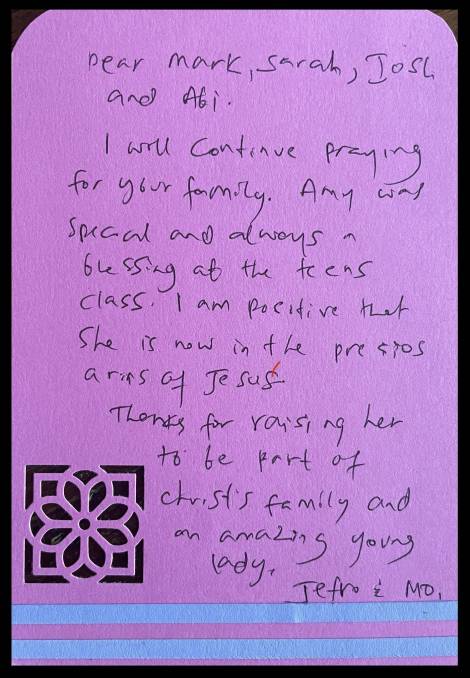 Dear Mark, Sarah, Josh
and Abi.
I will continue praying
for your family. Amy was
special and always a
blessing at the teens
class. I am positive that
she is now in the presios
arms of Jesus
Thanks for raising her
to be part of
christ's family and
an amazing young
lady.
Jefro & MO.